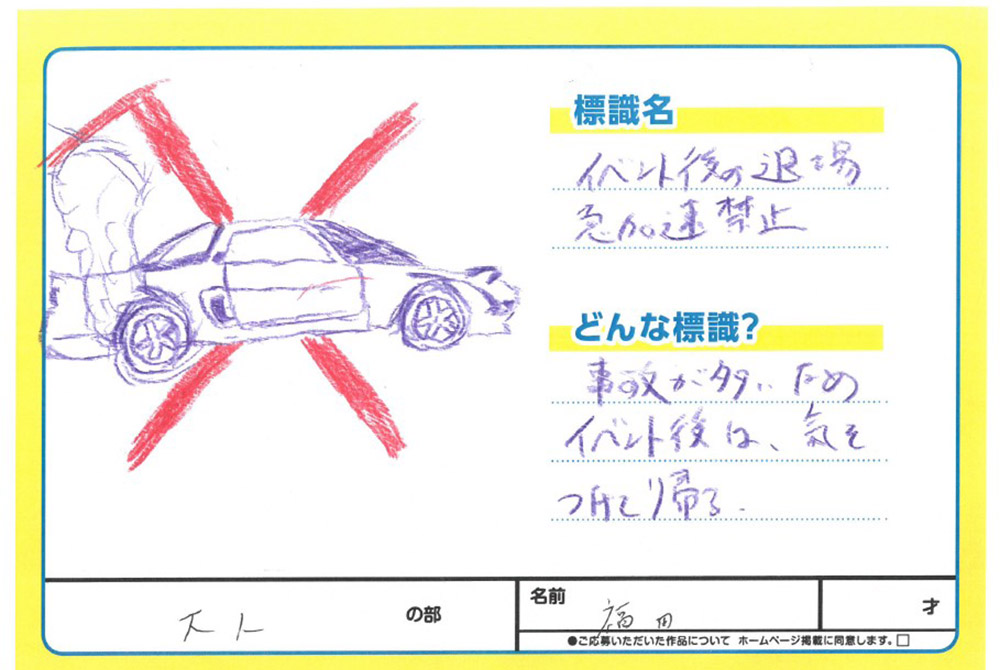 標識名
イベント後の退場
急加速禁止
どんな標識?
事故が多いため
イベント後は、気を
つけて帰る.
大人 の部
名前 福田
才
●ご応募いただいた作品について ホームページ掲載に同意します。□